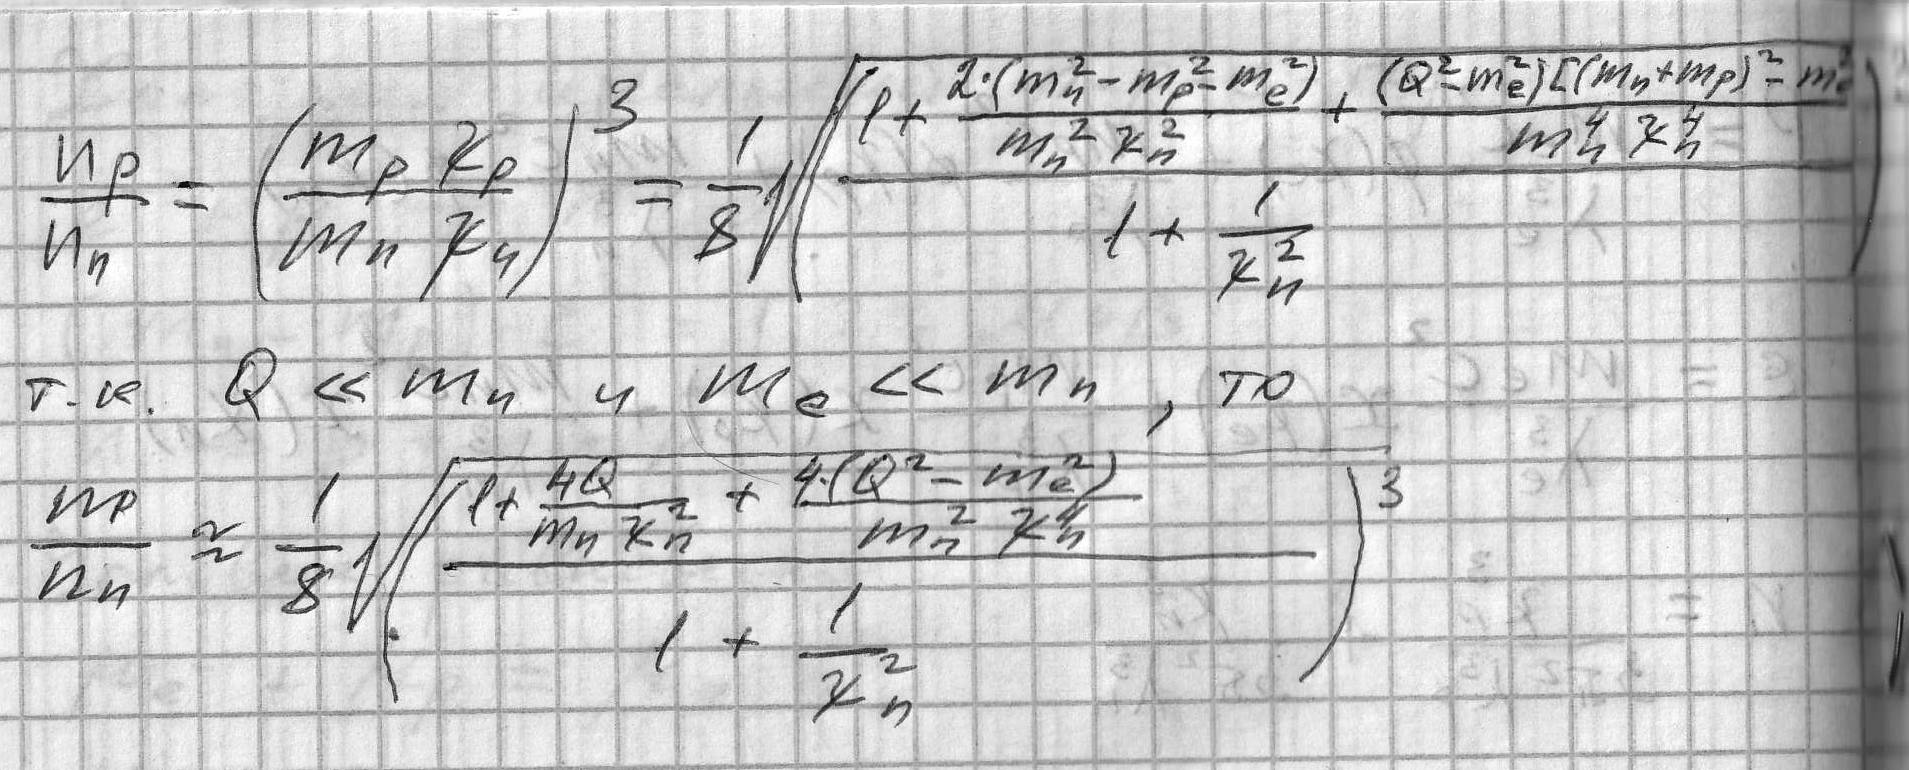 n_p/n_n = (m_p x_p / m_n x_n)^3 = 1/8 √((1 + 2·(m_n^2 - m_p^2 - m_e^2)/(m_n^2 x_n^2) + (Q^2 - m_e^2)[(m_n + m_p)^2 - m_e^2]/(m_n^4 x_n^4)) / (1 + 1/x_n^2))
т.к. Q << m_n и m_e << m_n, то
n_p/n_n ≃ 1/8 √((1 + 4Q/(m_n x_n^2) + 4·(Q^2 - m_e^2)/(m_n^2 x_n^4)) / (1 + 1/x_n^2))^3